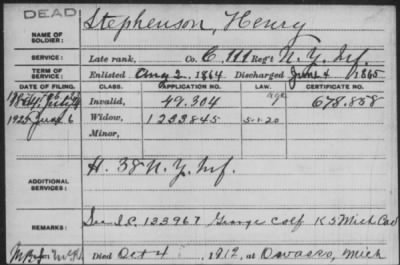 DEAD
Stephenson, Henry
NAME OF SOLDIER:
SERVICE: Late rank, Co. C, 111 Reg't N.Y. Inf.
TERM OF SERVICE: Enlisted Aug 2, 1864, Discharged June 4 1865
DATE OF FILING. CLASS. APPLICATION NO. LAW. CERTIFICATE NO.
Invalid, 49.304 age 678.858
1925 Widow, 1233845 5-1-20
Minor,
ADDITIONAL SERVICES: H. 38 N.Y. Inf.
REMARKS: See I.C. 133967 George Colf K 5 Mich Cav
Died Oct 4, 1912, at Owasso, Mich